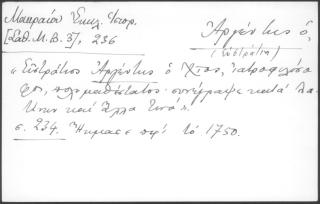 Μακραίου Ἐκκλ. Ἱστορ.
[Σαθ. Μ.Β. 3], 236
Ἀργέντης ὁ,
(Εὐστράτιος)
«Εὐστράτιος Ἀργέντης ὁ Χῖος, ἰατροφιλόσο
φος, πολυμαθέστατος· συνέγραψε κατὰ Λα
τίνων καὶ ἄλλα τινά».
σ. 234. Ἤκμασε περὶ τὸ 1750.